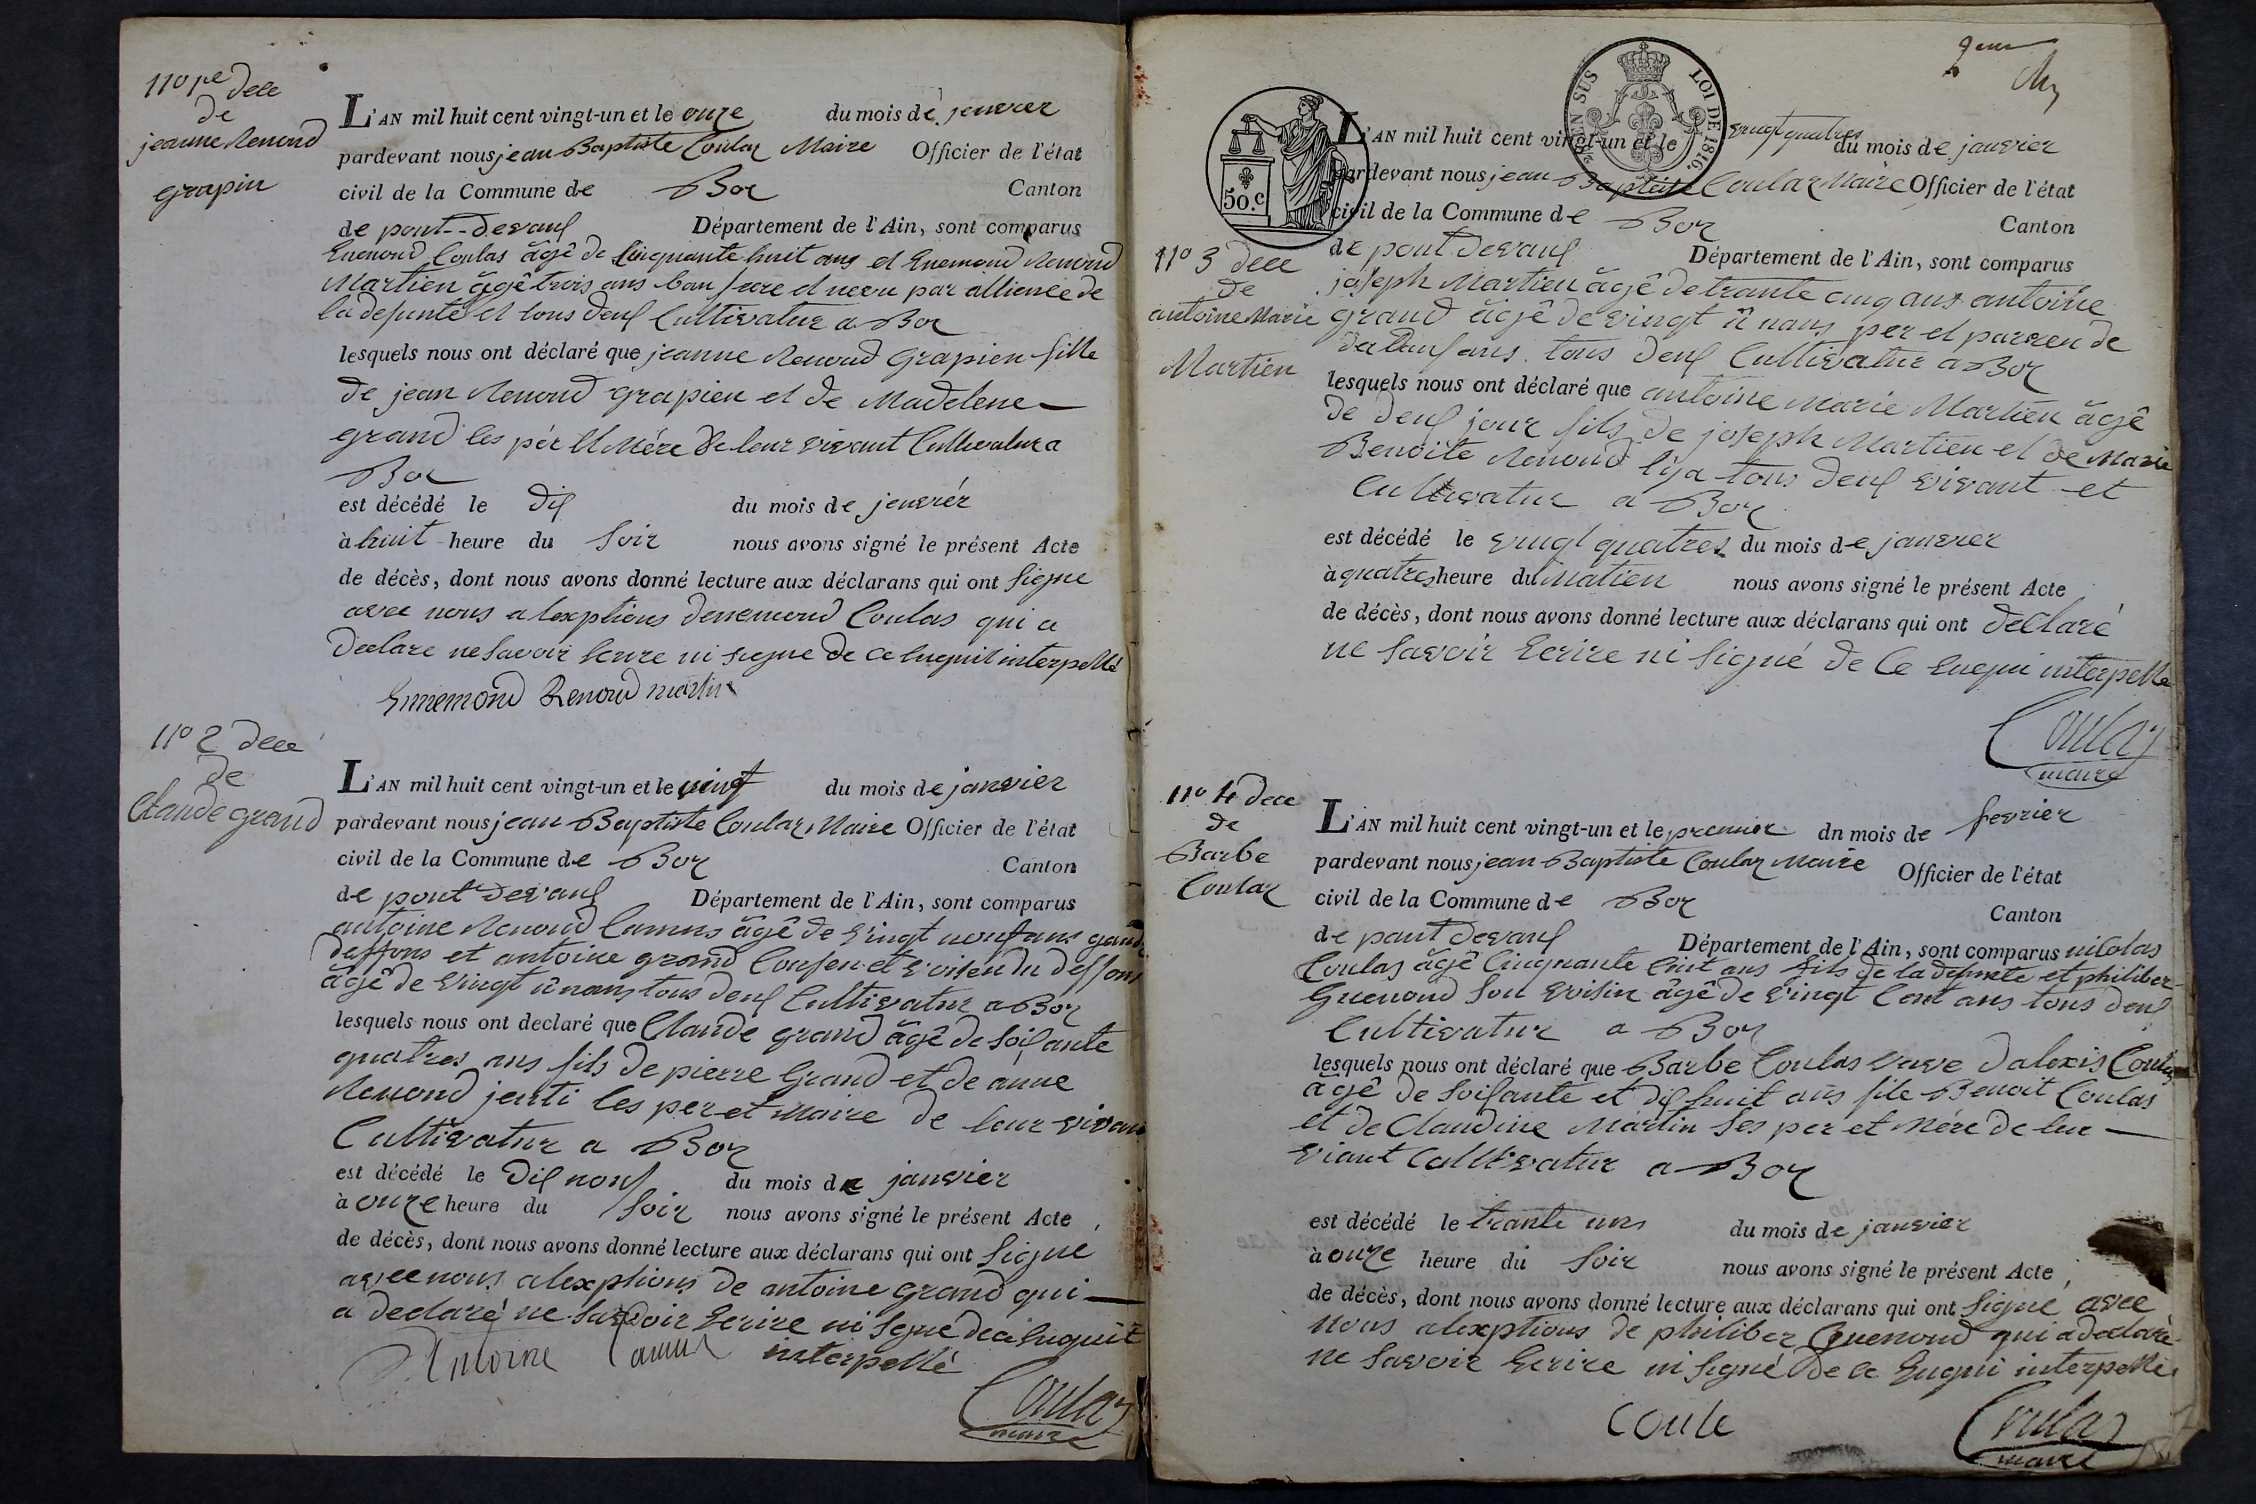 n° 1re dece
de
jeanne Renoud
grapin
L'AN mil huit cent vingt-un et le onze du mois de jenvier
pardevant nous jean Baptiste Coulaz Maire Officier de l'état
civil de la Commune de Boz Canton
de pont-devaux Département de l'Ain, sont comparus
Enemond Coulas âgê de Cinquante huit ans et Enemond Renoud
Martien âgê trois ans bau frere et neveu par allience de
la defunte et tous deux Cultivatur a Boz
lesquels nous ont déclaré que jeanne Renoud Grapien fille
de jean Renoud grapien et de Madelene
grand les pér et Mére de leur vivant Cultivatur a
Boz
est décédé le dix du mois de jenvrér
à huit heure du Soir nous avons signé le présent Acte
de décès, dont nous avons donné lecture aux déclarans qui ont Signe
avec nous a lexptions denemond Coulas qui a
declare ne savoir Ecrire ni signe de ce Enquit interpellé
Ennemond Renoud martin
n° 2 dece
de
Claude grand
L'AN mil huit cent vingt-un et le vingt du mois de janvier
pardevant nous jean Baptiste Coulaz Maire Officier de l'état
civil de la Commune de Boz Canton
de pont devaux Département de l'Ain, sont comparus
antoine Renoud Camus âgê de vingt nouf ans
deffons et antoine grand Consen et voisen du deffons
âgê de vingt û nans tous deux Cultivatur a Boz
lesquels nous ont declaré que Claude grand âgê de Soixante
quatres ans fils de pierre Grand et de anne
Renoud jenti les per et Maire de leur vivan
Cultivatur a Boz
est décédé le dix nouf du mois de janvier
à onze heure du Soir nous avons signé le présent Acte
de décès, dont nous avons donné lecture aux déclarans qui ont Signé
avec nous a lexptions de antoine grand qui
a declaré ne Savoir Ecrire ni Signe de ce Enquit
interpellé
Antoine Camus
Coulaz
maire
50.c
EN SUS LOI DE 1816.
L'AN mil huit cent vingt-un et le vingt quatres du mois de janvier
pardevant nous jean Baptiste Coulaz Maire Officier de l'état
civil de la Commune de Boz Canton
de pont devaux Département de l'Ain, sont comparus
n° 3 dece
de
antoine Marie
Martien
joseph Martien âgê de trante cinq ans antoine
grand âgê de vingt û nans per et parren de
tous deux Cultivatur a Boz
lesquels nous ont déclaré que antoine Marie Martien âgê
de deux jour fils de joseph Martien et de Marie
Benoite Renoud lija tous deux vivant et
Cultivatur a Boz
est décédé le vingt quatres du mois de janvier
à quatres heure du Matien nous avons signé le présent Acte
de décès, dont nous avons donné lecture aux déclarans qui ont declaré
ne Savoir Ecrire ni Signé de Ce Enqui interpelle
Coulaz
maire
n° 4 dece
de
Barbe
Coulaz
L'AN mil huit cent vingt-un et le premier dn mois de fevrier
pardevant nous jean Baptiste Coulaz Maire Officier de l'état
civil de la Commune de Boz Canton
de pont devaux Département de l'Ain, sont comparus nicolas
Coulas âgê Cinquante huit ans fils de la defunte et philiber
Guenoud Son voisin âgê de vingt Cent ans tous deux
Cultivatur a Boz
lesquels nous ont déclaré que Barbe Coulas veuve dalexis
âgê de Soixante et dix huit ans file Benoit Coulas
et de Claudine Martin Ses per et Mére de lur
viant Cultivatur a Boz
est décédé le trante uns du mois de janvier
à onze heure du Soir nous avons signé le présent Acte
de décès, dont nous avons donné lecture aux déclarans qui ont Signe avec
nous a lexptions de philiber Guenoud qui a declaré
ne Savoir Ecrire ni Signé de ce Enqui interpelle
COULE
Coulaz
maire